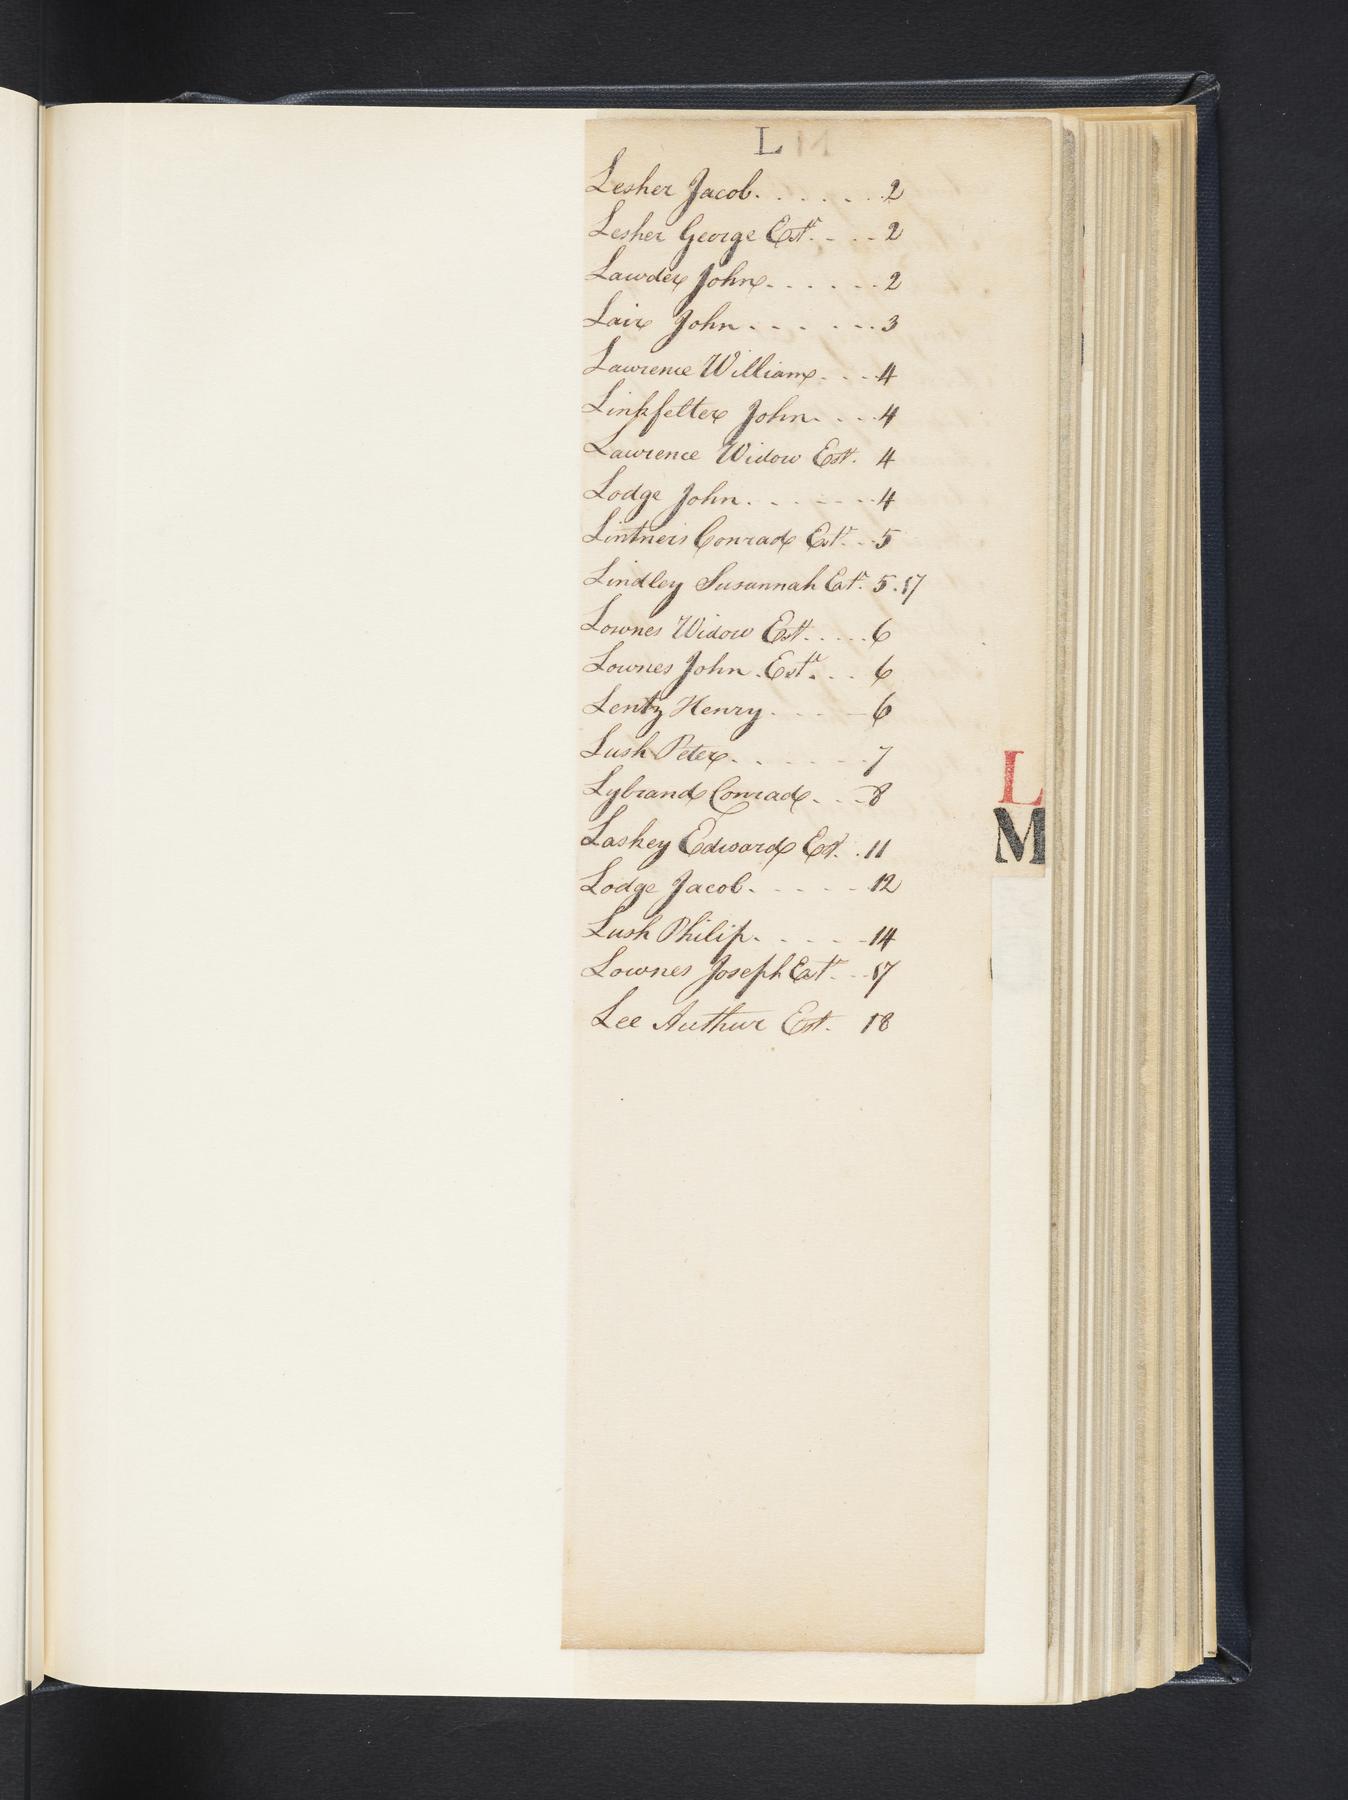 L
Lesher Jacob. . . . . . . 2
Lesher George Estr. - - - 2
Lawder John. . . . . . 2
Lair John . . . . . . 3
Lawrence William. . . . 4
Linkfelter John. . . . 4
Lawrence Widow Est. 4
Lodge John. . . . . . . 4
Lintners Conrad Estr. . . 5
Lindley Susannah Estr. 5. 17
Lownes Widow Est. . . . . 6
Lownes John . Estr. . . 6
Lentz Henry . . . . . 6
Lush Peter. . . . . . . 7
Lybrand Conrad. . . . 8
Laskey Edward Est. . 11
Lodge Jacob. . . . . . 12
Lush Philip. . . . . . 14
Lownes Joseph Estr. . . 17
Lee Arthur Est. 18
L
M